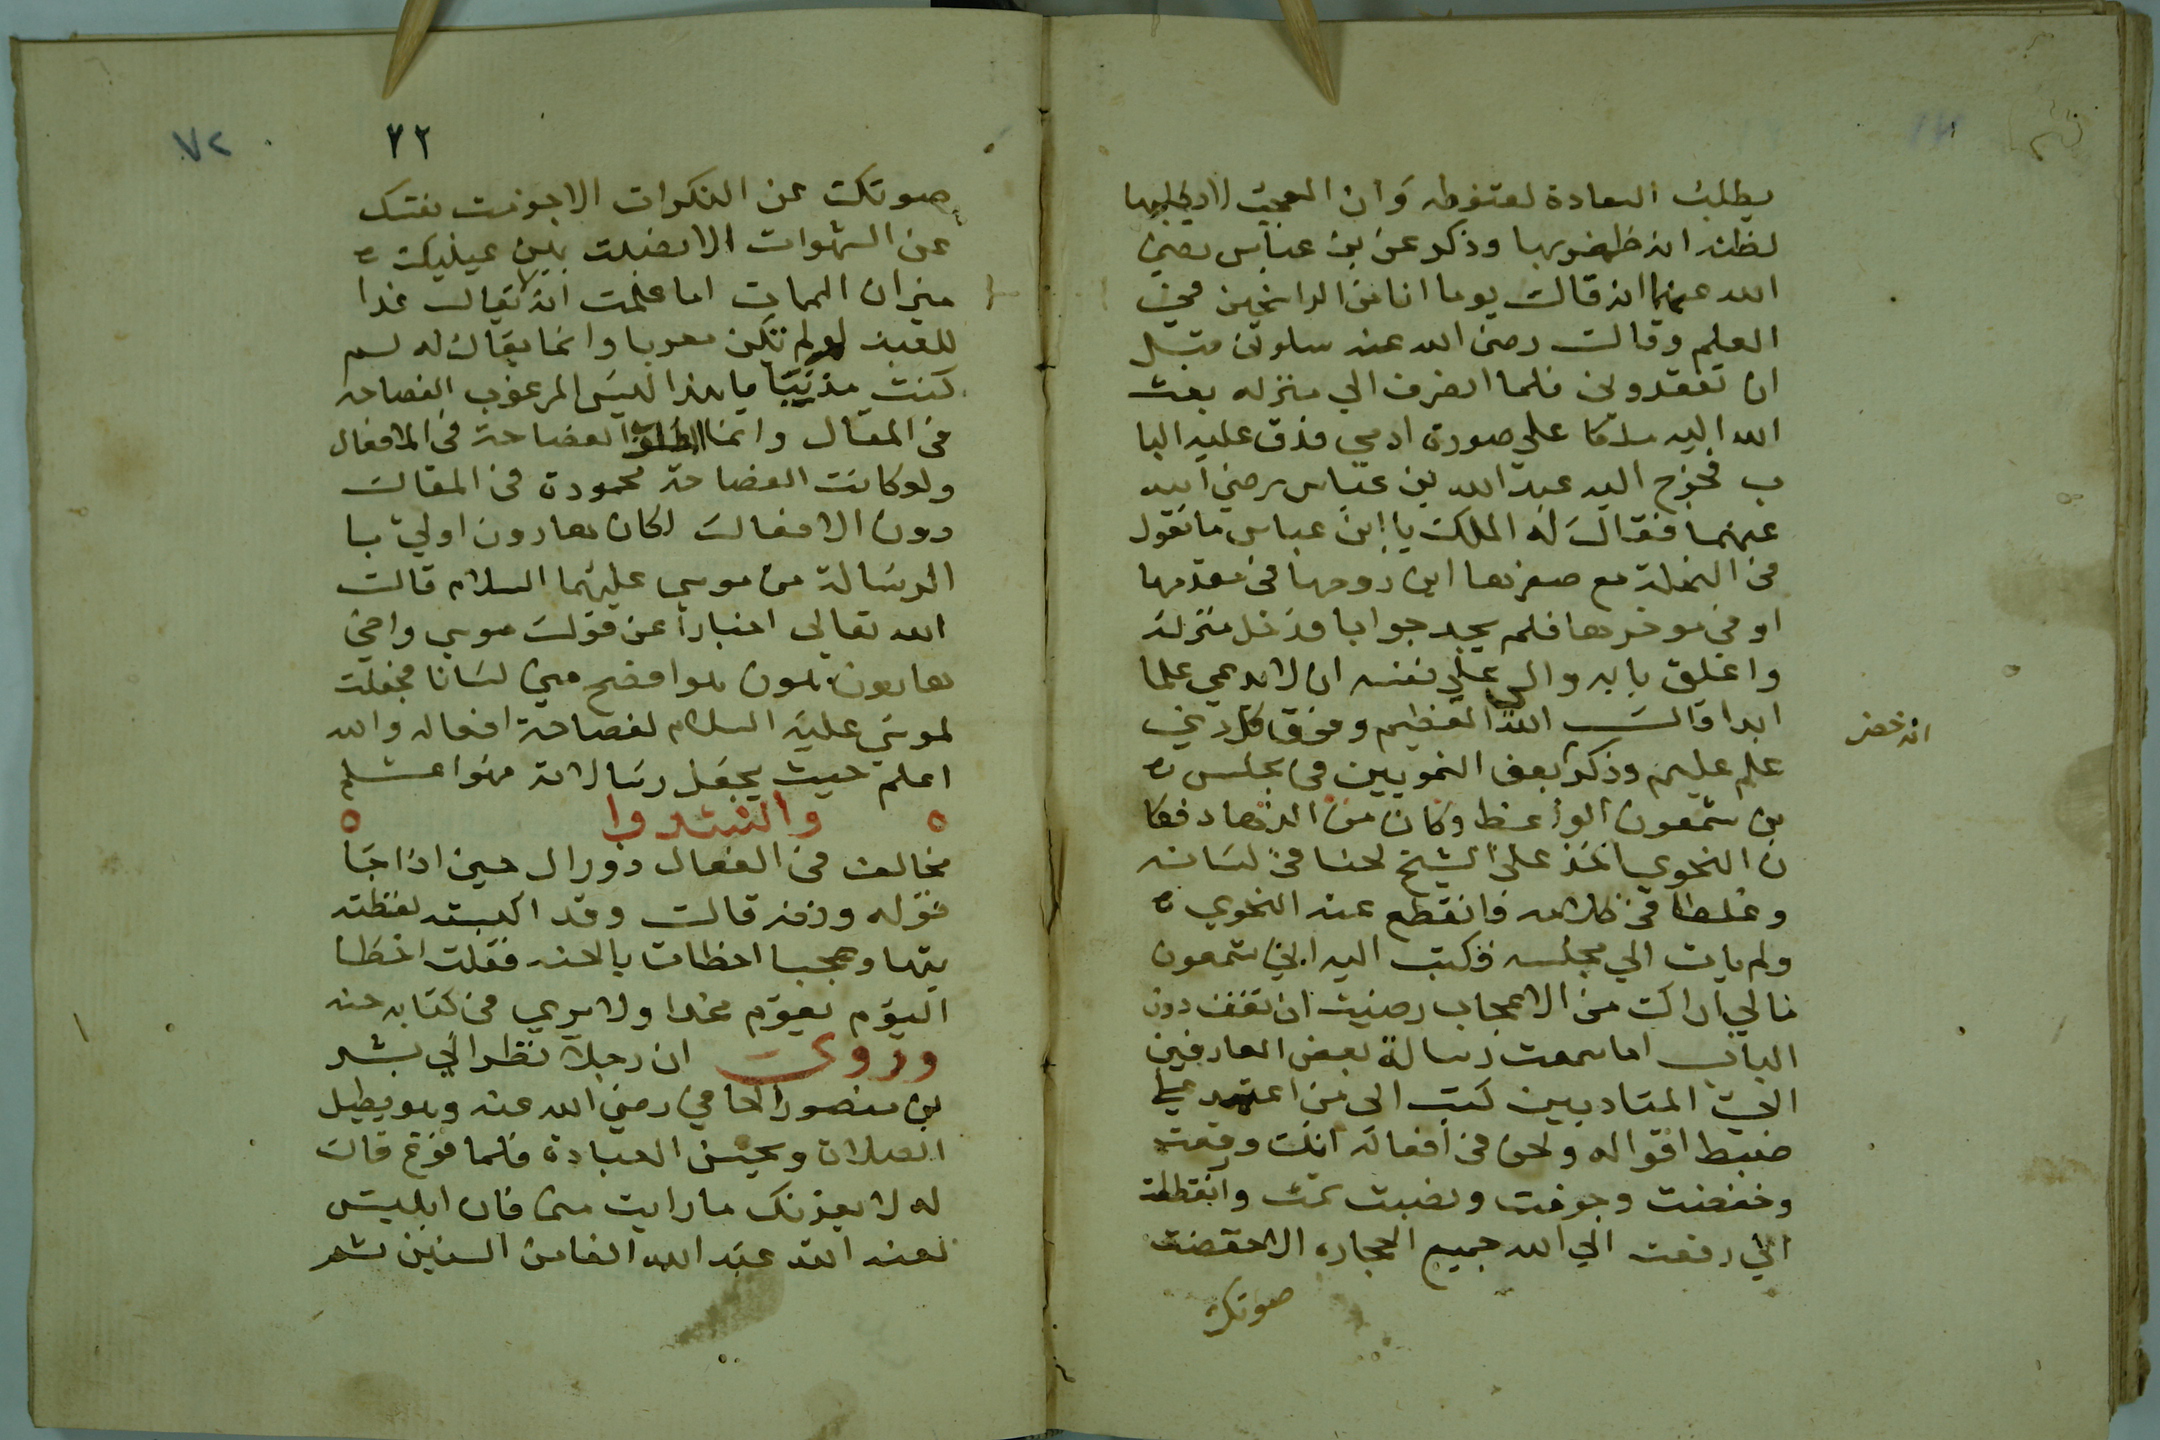 يطلب السعادة لعتوطه وان المعجب لا يطلبها
لظنه انه ظفر بها وذكر عن بن عباس رضي
الله عنهما انه قال يوما انا من الراسخين في
العلم وقال رضي الله عنه سلوني قبل
ان تفقدوني فلما انصرف الي منزله بعث
الله اليه ملاكا علي صورة ادمي فدق عليه البا
ب فخرج اليه عبد الله بن عباس رضي الله
عنهما فقال له الملك يا ابن عباس ما تقول
في النملة مع صغرها اين روحها في مقدمها
او في موخرها فلم يجد جوابا فدخل منزله
واغلق بابه والي علي نفسه ان لا يدعي علما
ابدا قال الله العظيم وفوق كل ذي
علم عليم وذكر بعض النحويين في مجلس
انه حضر
بن سمعون الواعظ وكان من الزهاد فكا
ن النحوي اخذ علي الشيخ لحنا في لسانه
وغلطا في كلامه فانقطع عنه النحوي
ولم يات الي مجلسه فكتب اليه ابن سمعون
مالي اراك من الاعجاب رضيت ان تقف دون
الباب اما سمعت رسالة بعض العارفين
الي المتادبين كتب الي من اعتمد علي
ضبط اقواله ولحن في افعاله انك رفعت
وخفضت وجزمت ونصبت تمت وانقطعت
الي رفعت الي الله جميع الحجاره الا خفضت
صوتك
٧٢
٧٢
صوتك عن المنكرات الا جزمت نفسك
عن الشهوات الا نصبت بين عينيك
ميزان الممات اما علمت انه يقال غدا
للعبد لم لم تكن معربا وانما يقال له لم
كنت مذنبا يا هذا ليس المرغوب الفصاحه
في المقال وانما الفصاحة في الافعال
ولو كانت الفصاحة محمودة في المقال
دون الافعال لكان هارون اولي با
الرسالة من موسي عليهما السلام قال
الله تعالي اخبارا عن قول موسي واخي
هارون هو افصح مني لسانا فجعلت
لموسي عليه السلام لفصاحة افعاله والله
اعلم حيث يجعل رسالاته
وانشدوا
مخالف في الفعال دورال حين اذا جا
قوله وزنه قال وقد اكسبته لفظته
تيها وعجبا اخطات يا لحنه فقلت اخطا
اليوم يقوم غدا ولا يري في كتابه حسنه
وروي ان رجلا نظر الي بشر
بن منصور الحافي رضي الله عنه وهو يطيل
الصلاة ويحسن العبادة فلما فرغ قال
له لا يغرنك ما رايت مني فان ابليس
لعنه الله عبد الله الفا من السنين